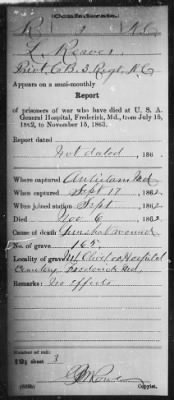 Confederate.
R 3 N.C.
L. Reaver
Privt, Co. B, 3 Regt. N.C.
Appears on a semi-monthly
Report
of prisoners of war who have died at U. S. A.
General Hospital, Frederick, Md., from July 15,
1862, to November 15, 1863.
Report dated
Not dated, 186 .
Where captured Antietam Md
When captured Sept 17, 1862.
When joined station Sept , 1862.
Died Nov 6, 1862.
Cause of death Gunshot wound
No. of grave 165
Locality of grave Mt Olivet Hospital
Cemetery Frederick Md.
Remarks: No effects
Number of roll:
212; sheet 3
Copyist.